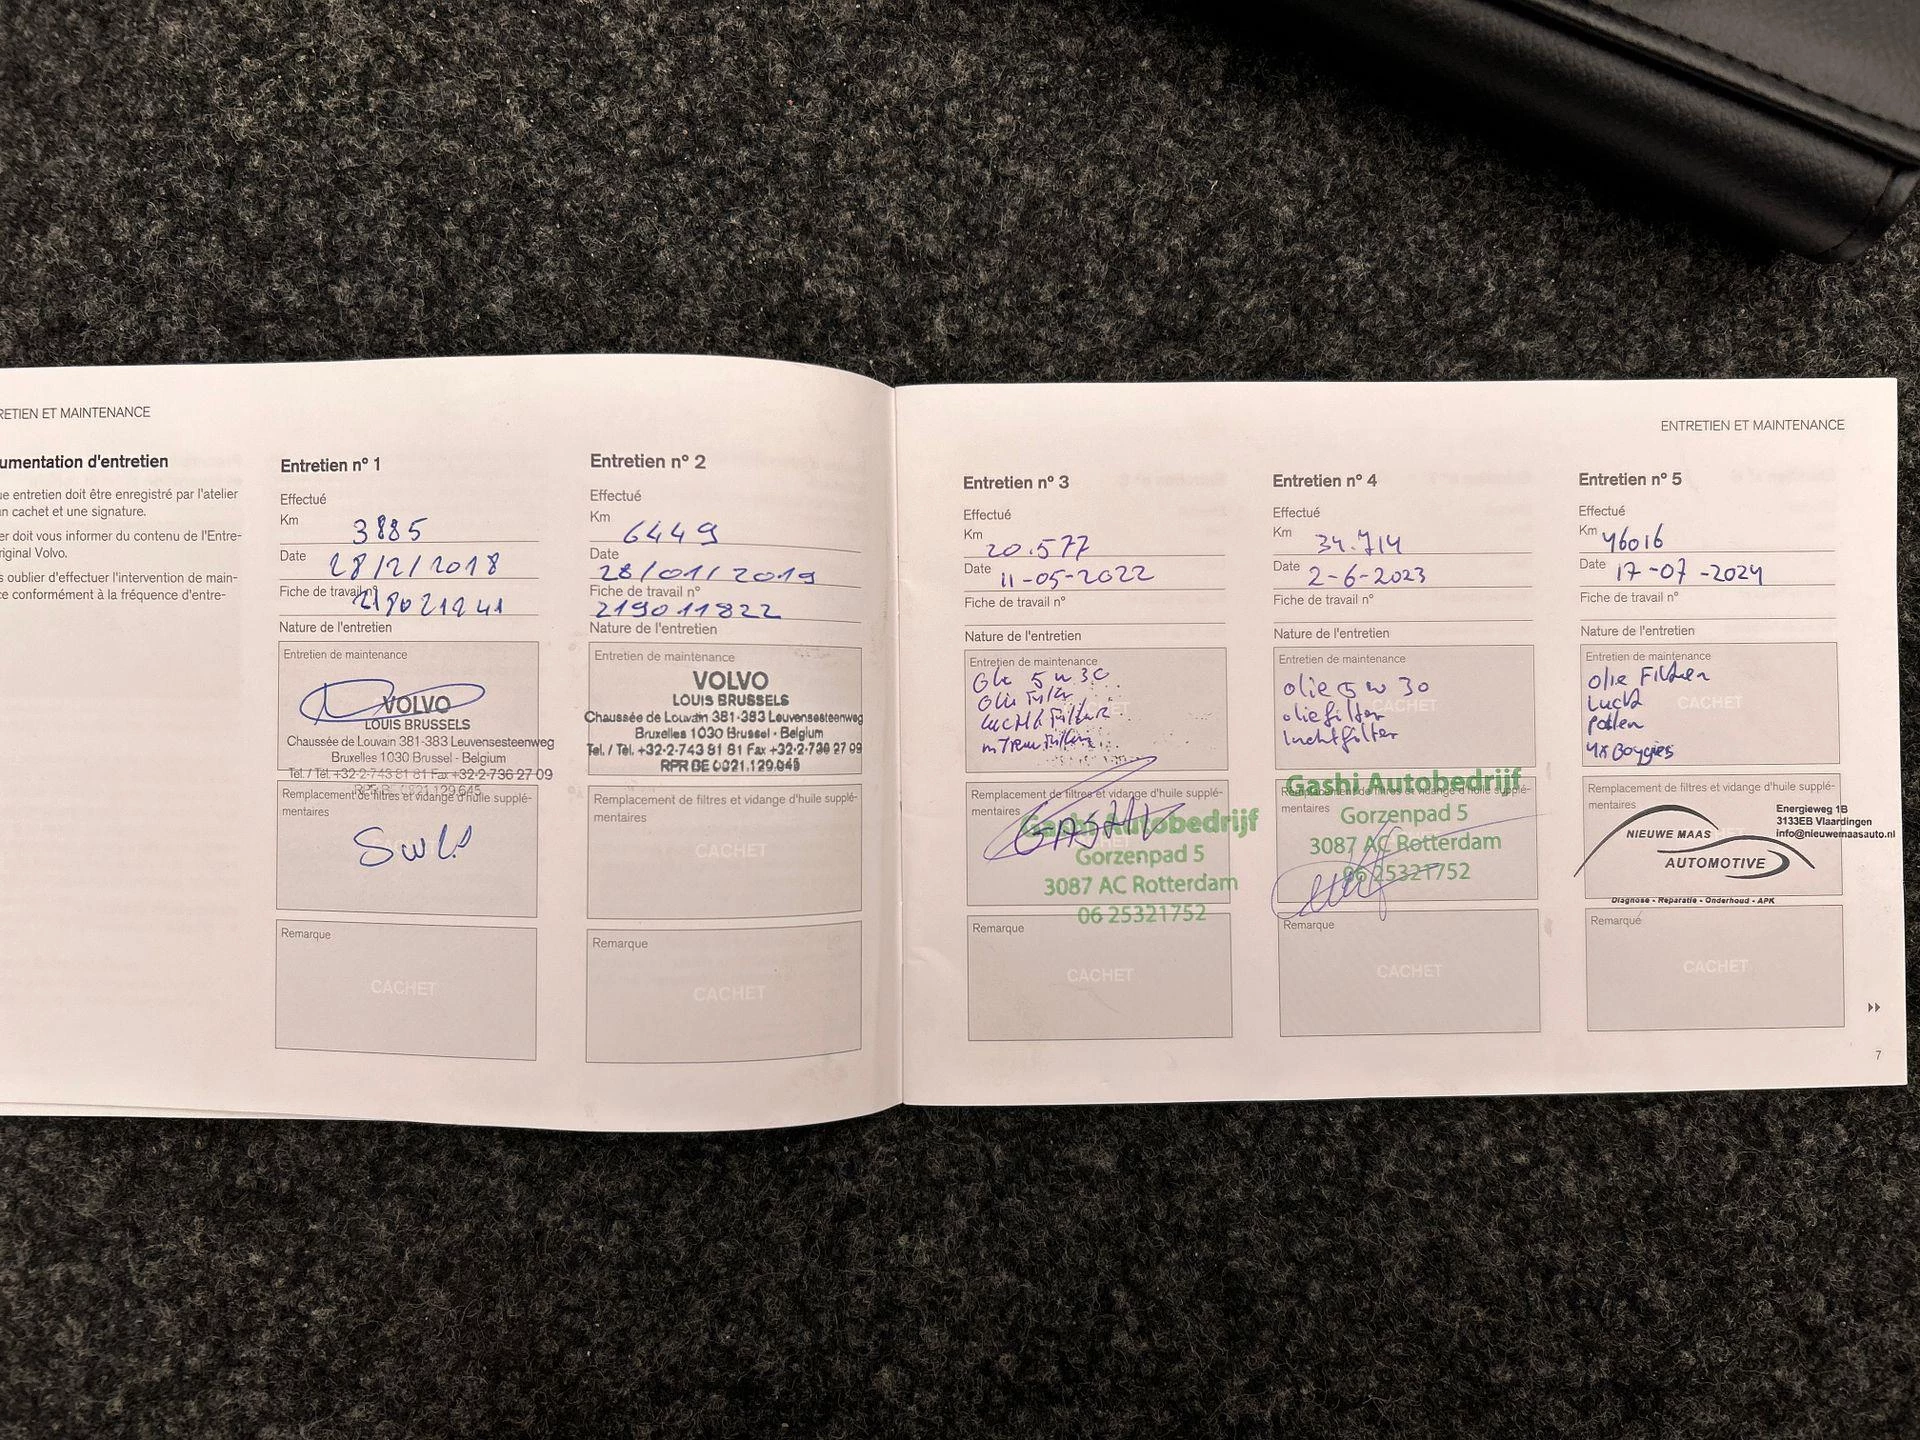 RETIEN ET MAINTENANCE
umentation d'entretien
ue entretien doit être enregistré par l'atelier
un cachet et une signature.
er doit vous informer du contenu de l'Entre-
riginal Volvo.
s oublier d'effectuer l'intervention de main-
ce conformément à la fréquence d'entre-
Entretien nº 1
Effectué
Km 3885
Date 28/2/2018
Fiche de travail nº
Nature de l'entretien
Entretien de maintenance
VOLVO
LOUIS BRUSSELS
Chaussée de Louvain 381-383 Leuvensesteenweg
Bruxelles 1030 Brussel - Belgium
Tel. / Tél. +32-2-743 81 81 Fax +32-2-736 27 09
Remplacement de filtres et vidange d'huile supplé-
mentaires
Remarque
CACHET
Entretien nº 2
Effectué
Km 6449
Date 28/01/2019
Fiche de travail nº 219011822
Nature de l'entretien
Entretien de maintenance
VOLVO
LOUIS BRUSSELS
Chaussée de Louvain 381-383 Leuvensesteenweg
Bruxelles 1030 Brussel - Belgium
Tel. / Tél. +32-2-743 81 81 Fax +32-2-736 27 09
RPR BE 0821.129.645
Remplacement de filtres et vidange d'huile supplé-
mentaires
CACHET
Remarque
CACHET
ENTRETIEN ET MAINTENANCE
Entretien nº 3
Effectué
Km 20.577
Date 11-05-2022
Fiche de travail nº
Nature de l'entretien
Entretien de maintenance
5w30
Remplacement de filtres et vidange d'huile supplé-
mentaires
GASHI
Gashi Autobedrijf
Gorzenpad 5
3087 AC Rotterdam
06 25321752
Remarque
CACHET
Entretien nº 4
Effectué
Km 34.714
Date 2-6-2023
Fiche de travail nº
Nature de l'entretien
Entretien de maintenance
CACHET
olie 5w30
oliefilter
luchtfilter
Gashi Autobedrijf
Remplacement de filtres et vidange d'huile supplé-
mentaires
Gorzenpad 5
3087 AC Rotterdam
06 25321752
Remarque
CACHET
Entretien nº 5
Effectué
Km 46016
Date 17-07-2024
Fiche de travail nº
Nature de l'entretien
Entretien de maintenance
CACHET
olie Filter
Lucht
pollen
4x Bougies
Remplacement de filtres et vidange d'huile supplé-
mentaires
Energieweg 1B
3133EB Vlaardingen
info@nieuwemaasauto.nl
NIEUWE MAAS
AUTOMOTIVE
Diagnose - Reparatie - Onderhoud - APK
Remarque
CACHET
7